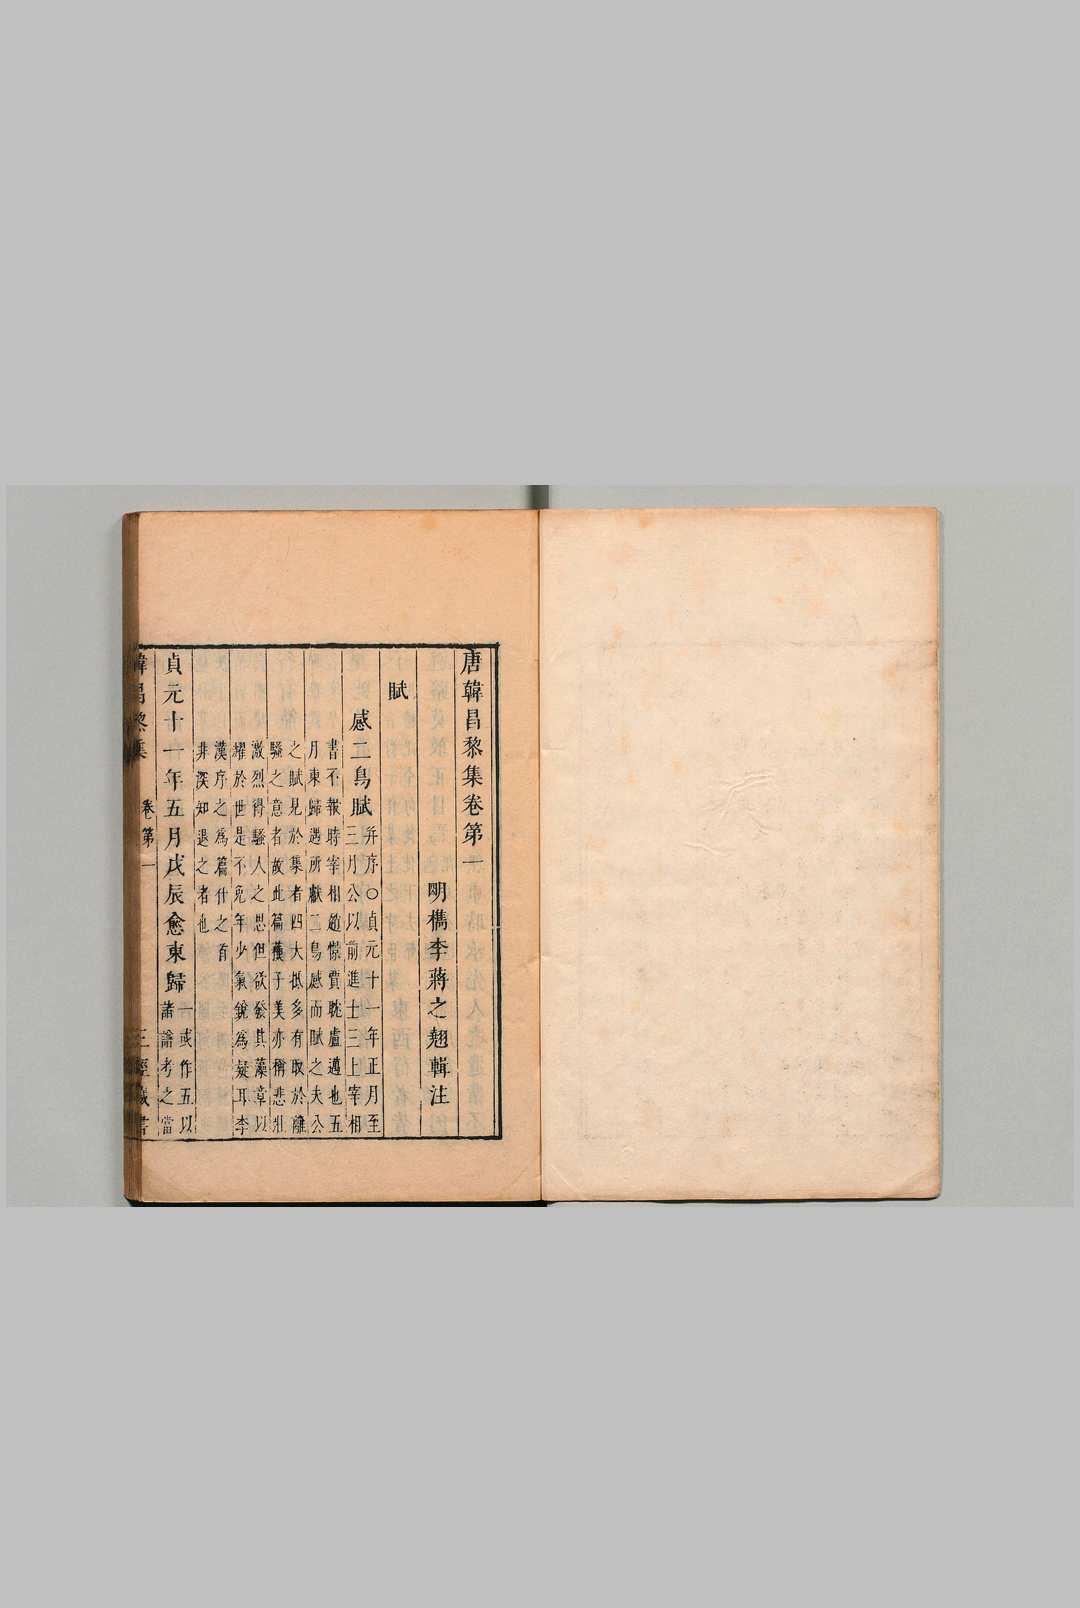 唐韓昌黎集卷第一
明檇李蔣之翹輯注
賦
感二鳥賦
并序○貞元十一年正月至
三月公以前進士三上宰相
書不報時宰相趙憬賈耽盧邁也五
月東歸遇所獻二鳥感而賦之夫公
之賦見於集者四大抵多有取於離
騷之意者故此篇蘇子美亦稱悲壯
激烈得騷人之思但欲發其藻章以
耀於世是不免年少氣銳為疑耳李
漢序之為篇什之首
非深知退之者也
貞元十一年五月戊辰愈東歸
一或作五以
諸譜考之當
韓昌黎集
卷第一
三徑藏書